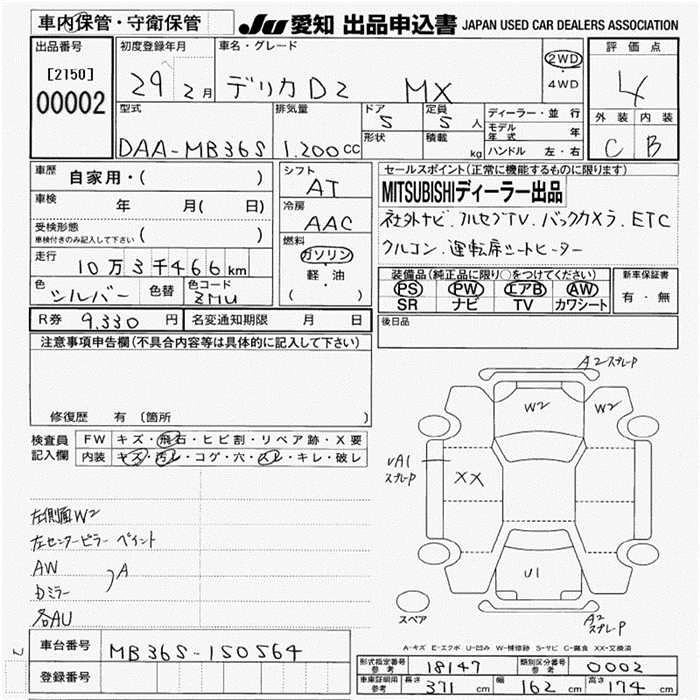 車内保管・守衛保管
JU 愛知 出品申込書 JAPAN USED CAR DEALERS ASSOCIATION
出品番号
[2150]
00002
初度登録年月
29 2月
車名・グレード
デリカD2 MX
2WD
4WD
評価点
4
外装 内装
C B
型式
DAA-MB36S
排気量
1.200cc
ドア
5
形状
定員
5人
積載
kg
ディーラー・並行
モデル年式 年
ハンドル 左・右
車歴 自家用・( )
車検 年 月( 日)
受検形態
車検付きのみ記入して下さい ( )
走行 10万3千466km
色 シルバー 色替 色コード ZMU
シフト
AT
冷房
AAC
燃料
ガソリン
軽・油
( )
セールスポイント(正常に機能するものに限ります)
MITSUBISHIディーラー出品
社外ナビ.フルセブTV.バックカメラ.ETC
クルコン.運転席シートヒーター
装備品(純正品に限り○をつけてください)
PS PW エアB AW
SR ナビ TV カワシート
新車保証書
有・無
R券 9,330円 名変通知期限 月 日
後日品
注意事項申告欄(不具合内容等は具体的に記入して下さい)
修復歴 有〔箇所 〕
検査員記入欄
FW キズ・飛石・ヒビ割・リペア跡・X要
内装 キズ・汚レ・コゲ・穴・スレ・キレ・破レ
左側面W2
左センターピラー ペイント
AW
Dミラー
A
各AU
A2スプレP
W2
W2
UA1
スプレP
XX
U1
スペア
A2
スプレP
A-キズ E-エクボ U-凹み W-補修跡 S-サビ C-腐食 XX-交換済
車台番号 MB36S-150564
登録番号
形式指定番号 参考 18147 類別区分番号 参考 0002
車庫証明用 参考 長さ 371cm 幅 162cm 高さ 174cm